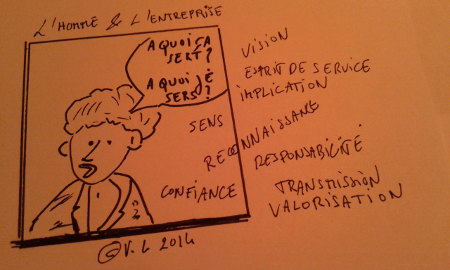 L'HOMME & L'ENTREPRISE
A QUOI ÇA
SERT ?
A QUOI JE
SERS ?
VISION
ESPRIT DE SERVICE
IMPLICATION
SENS
RECONNAISSANCE
RESPONSABILITÉ
CONFIANCE
TRANSMISSION
VALORISATION
©V.L 2014